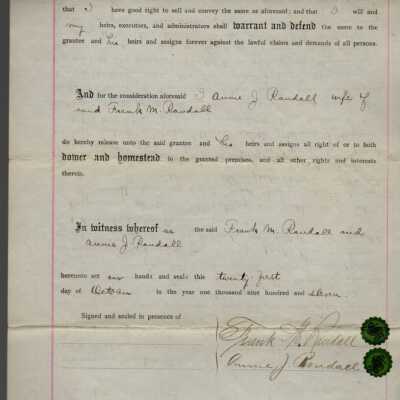 that I have good right to sell and convey the same as aforesaid; and that I will and
my heirs, executors, and administrators shall warrant and defend the same to the
grantee and his heirs and assigns forever against the lawful claims and demands of all persons.
And for the consideration aforesaid I Annie J Randall wife of
said Frank M. Randall
do hereby release unto the said grantee and his heirs and assigns all right of or to both
dower and homestead in the granted premises, and all other rights and interests
therein.
In witness whereof we the said Frank M. Randall and
Annie J. Randall
hereunto set our hands and seals this twenty first
day of October in the year one thousand nine hundred and eleven.
Signed and sealed in presence of
Frank M. Randall
Annie J Randall